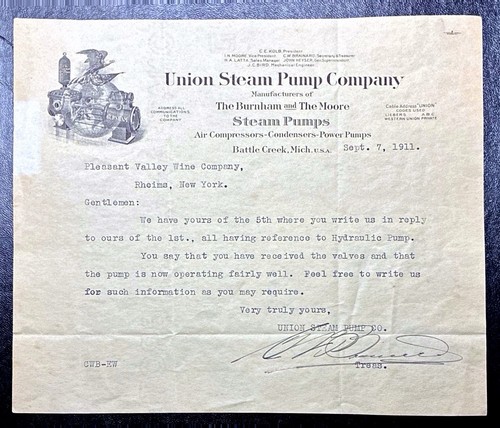 C. E. KOLB, President
I. N. MOORE, Vice President C. W. BRAINARD, Secretary & Treasurer
G. A. LATTA, Sales Manager JOHN HEYSER, Gen. Superintendent
J. C. BIRD, Mechanical Engineer
Union Steam Pump Company
Manufacturers of
The Burnham and The Moore
Steam Pumps
Air Compressors-Condensers-Power Pumps
Battle Creek, Mich. U.S.A.
ADDRESS ALL
COMMUNICATIONS
TO THE
COMPANY
Cable Address "UNION"
CODES USED
LIEBERS A B C
WESTERN UNION PRIVATE
Sept. 7, 1911.
Pleasant Valley Wine Company,
Rheims, New York.
Gentlemen:
We have yours of the 5th where you write us in reply
to ours of the 1st., all having reference to Hydraulic Pump.
You say that you have received the valves and that
the pump is now operating fairly well. Feel free to write us
for such information as you may require.
Very truly yours,
UNION STEAM PUMP CO.
C W Brainard
CWB-EW
Treas.